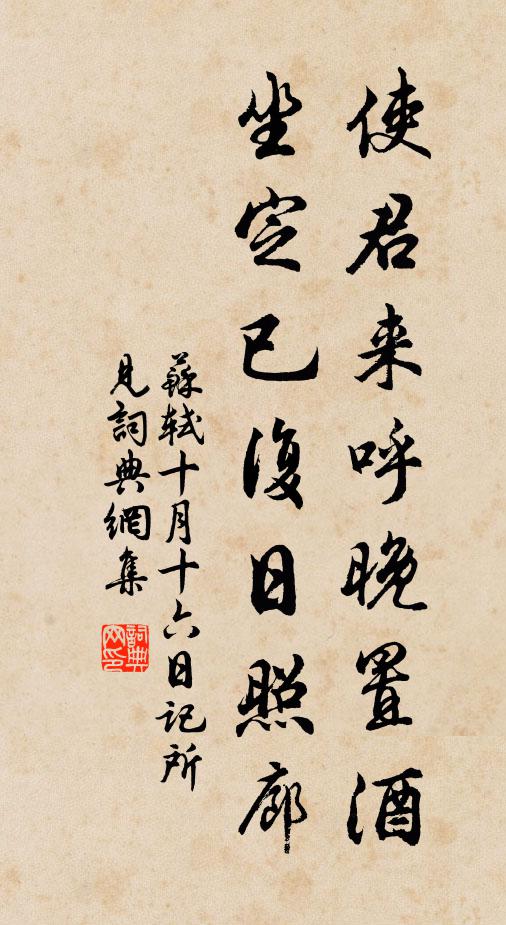 使君来呼晚置酒
坐定已復日照廊
蘇軾十月十六日記所
見詞典網集
詞典
网印